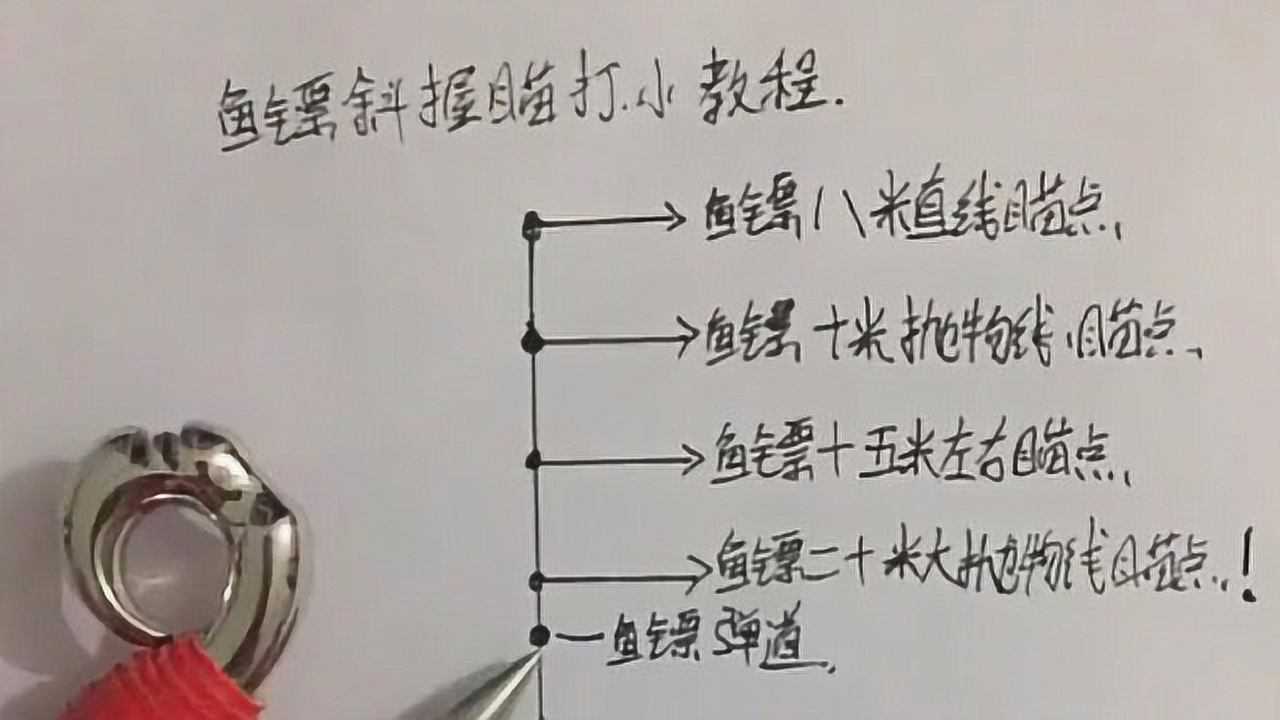 鱼镖斜握瞄打小教程.
鱼镖八米直线瞄点,
鱼镖十米抛物线瞄点、
鱼镖十五米左右瞄点,
鱼镖二十米大抛物线瞄点.!
鱼镖弹道,